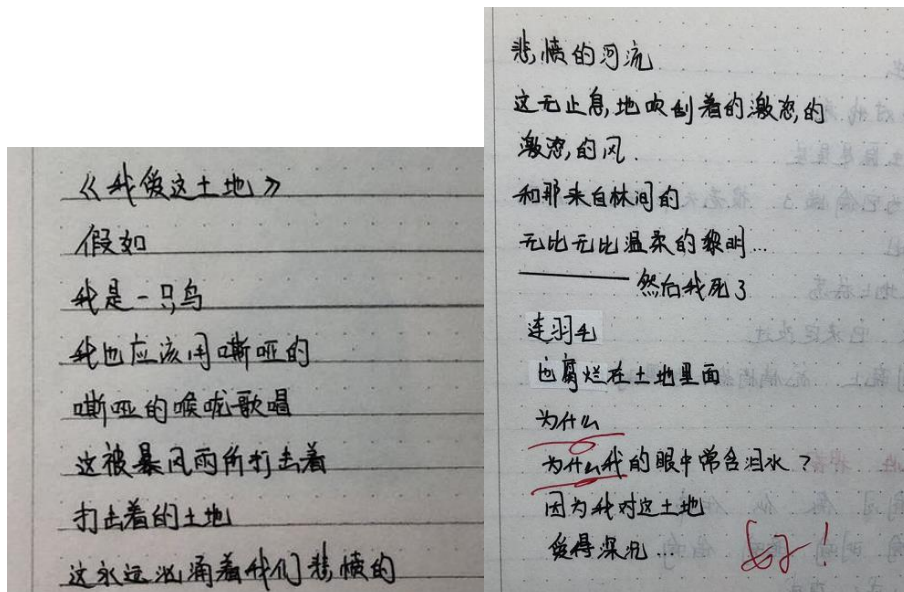 《我爱这土地》
假如
我是一只鸟
我也应该用嘶哑的
嘶哑的喉咙歌唱
这被暴风雨所打击着
打击着的土地
这永远汹涌着我们悲愤的
悲愤的河流
这无止息地吹刮着的激怒的
激怒的风
和那来自林间的
无比无比温柔的黎明...
——然后我死了
连羽毛
也腐烂在土地里面
为什么
为什么我的眼中常含泪水?
因为我对这土地
爱得深沉...
好!